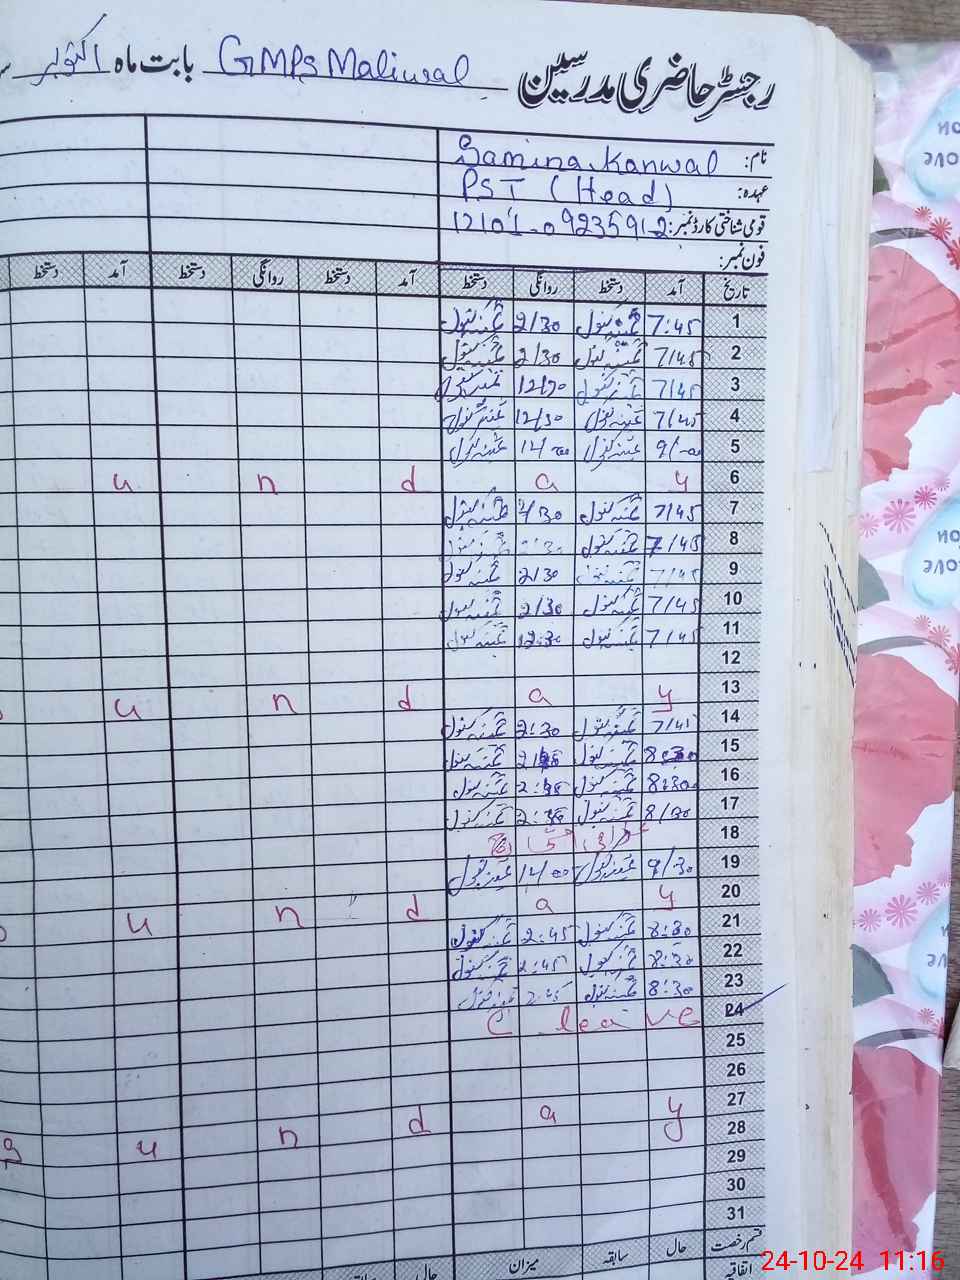 رجسٹر حاضری مدرسین GMPS Maliwal بابت ماہ اکتوبر
نام: Samina Kanwal
عہدہ: PST (Head)
قومی شناختی کارڈ نمبر: 12101-0923591-2
فون نمبر:
تاریخ آمد دستخط روانگی دستخط آمد دستخط روانگی دستخط آمد دستخط
1 7:45 ثمینہ کنول 2/30 ثمینہ کنول
2 7/45 ثمینہ کنول 2/30 ثمینہ کنول
3 7/45 ثمینہ کنول 12/30 ثمینہ کنول
4 7/45 ثمینہ کنول 12/30 ثمینہ کنول
5 9/00 ثمینہ کنول 12/00 ثمینہ کنول
6 u n d a y
7 7/45 ثمینہ کنول 2/30 ثمینہ کنول
8 7/45 ثمینہ کنول 2:30 ثمینہ کنول
9 7/45 ثمینہ کنول 2/30 ثمینہ کنول
10 7/45 ثمینہ کنول 2/30 ثمینہ کنول
11 7/45 ثمینہ کنول 12:30 ثمینہ کنول
12
13 u n d a y
14 7/45 ثمینہ کنول 2:30 ثمینہ کنول
15 8:30 ثمینہ کنول ثمینہ کنول
16 8:30 ثمینہ کنول 2:45 ثمینہ کنول
17 8/30 ثمینہ کنول ثمینہ کنول
18
19 9/30 ثمینہ کنول 12/00 ثمینہ کنول
20 u n d a y
21 8:30 ثمینہ کنول 2:45 ثمینہ کنول
22 8:30 ثمینہ کنول 2:45 ثمینہ کنول
23 8:30 ثمینہ کنول 2:45 ثمینہ کنول
24 C leave
25
26
27 u n d a y
28
29
30
31
قسم رخصت حال سابقہ میزان حال
اتفاقیہ
24-10-24 11:16